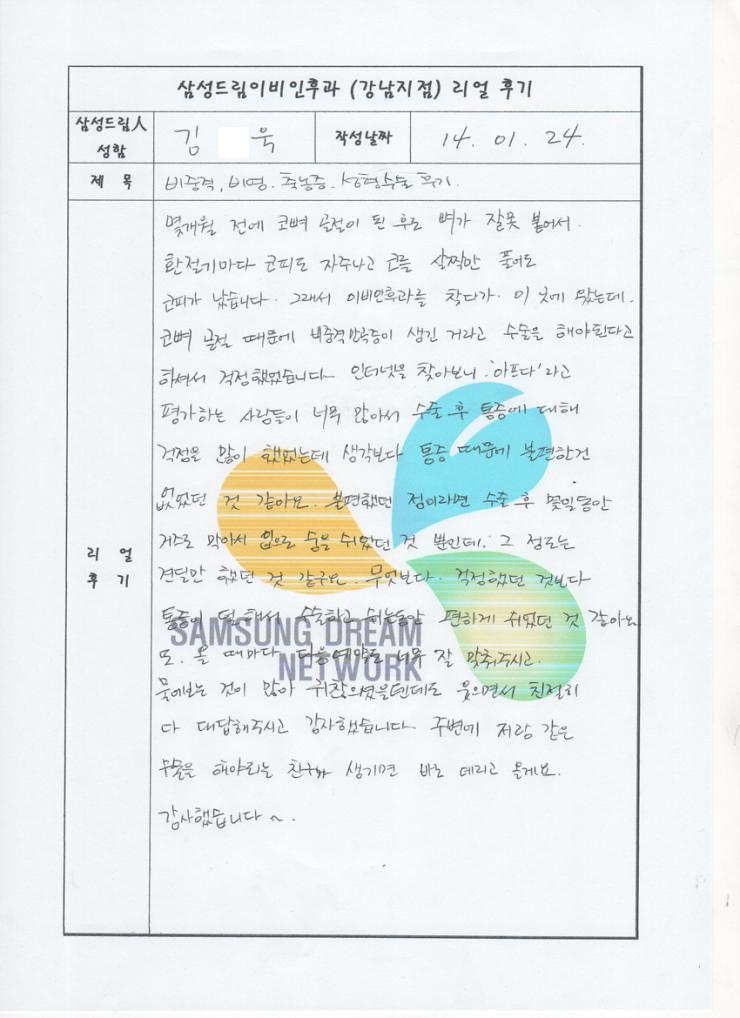 삼성드림이비인후과 (강남지점) 리얼 후기
삼성드림人 성함
김 욱
작성날짜
14. 01. 24.
제 목
비중격, 비염. 축농증. 성형수술 후기.
리 얼
후 기
몇개월 전에 코뼈 골절이 된 후로 뼈가 잘못 붙어서.
환절기마다 코피도 자주나고 코를 살짝만 풀어도
코피가 났습니다. 그래서 이비인후과를 찾다가. 이 곳에 왔는데.
코뼈 골절 때문에 비중격만곡증이 생긴 거라고 수술을 해야된다고
하셔서 걱정했었습니다. 인터넷을 찾아보니. '아프다'라고
평가하는 사람들이 너무 많아서 수술 후 통증에 대해
걱정을 많이 했었는데 생각보다 통증 때문에 불편한건
없었던 것 같아요. 불편했던 점이라면 수술 후 몇일동안
거즈로 막아서 입으로 숨을 쉬었던 것 뿐인데. 그 정도는
견딜만 했던 것 같구요. 무엇보다. 걱정했던 것보다
통증이 덜해서 수술하고 쉬는동안 편하게 쉬었던 것 같아요
또. 올 때마다 다음예약도 너무 잘 맞춰주시고.
물어보는 것이 많아 귀찮으셨을텐데도 웃으면서 친절히
다 대답해주시고 감사했습니다. 주변에 저랑 같은
해야되는 생기면 바로 데리고 올게요.
감사했습니다 ~.
SAMSUNG DREAM
NETWORK